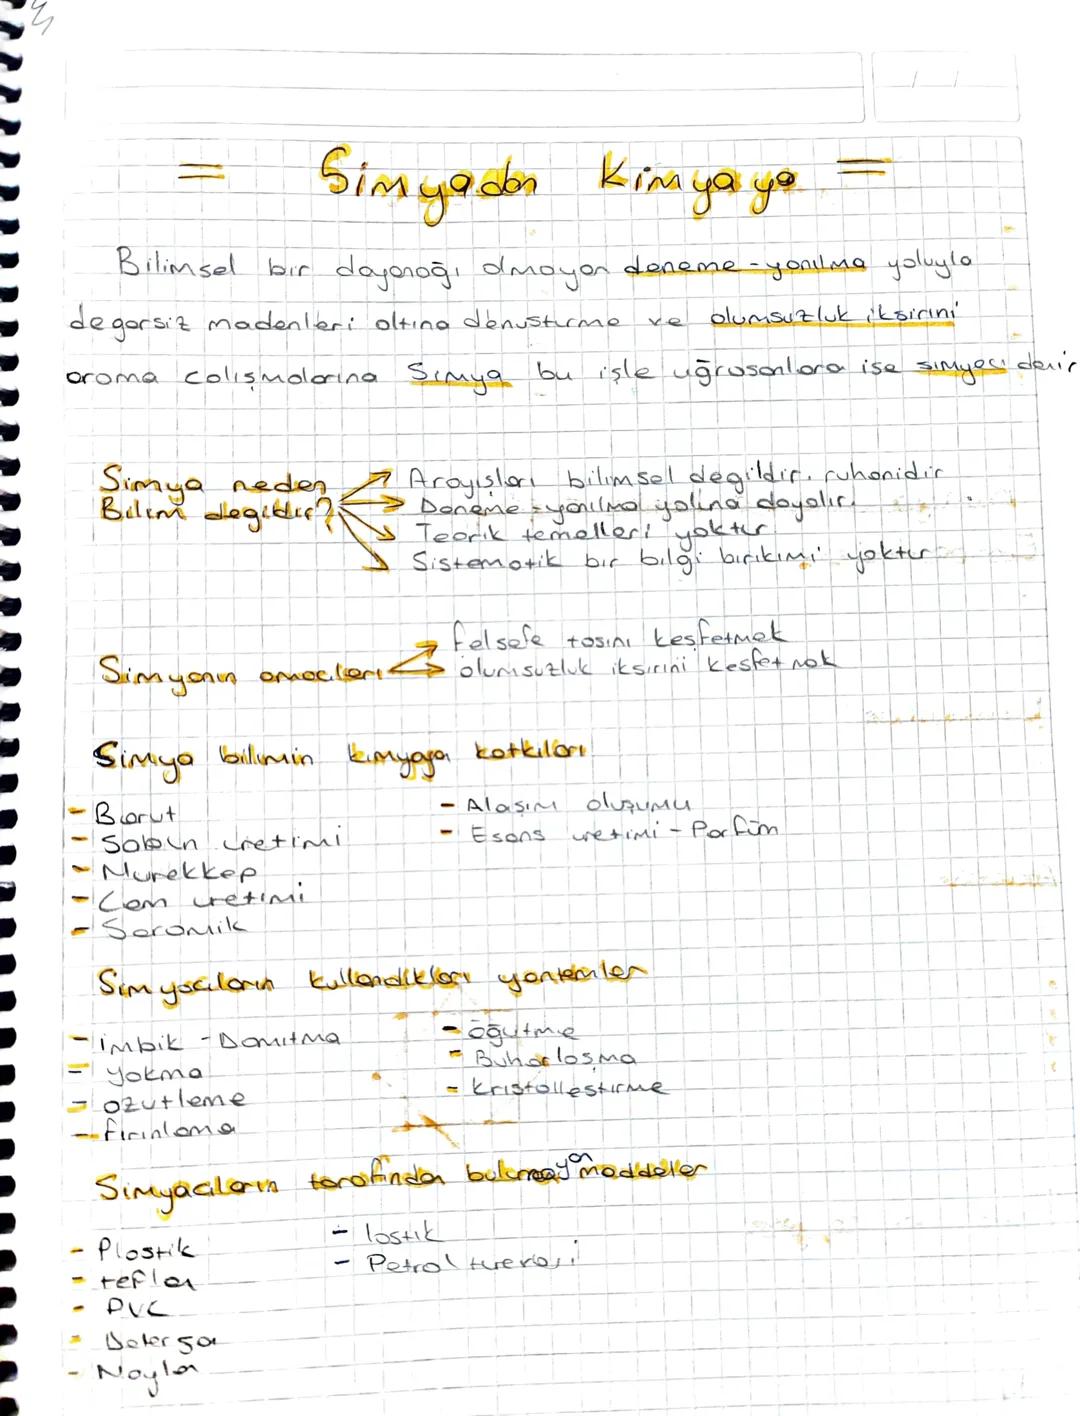 = Simyadan Kimyaya =
Bilimsel bir dayanağı olmayan deneme-yanılma yoluyla
degersiz madenleri altına dönüsturme ve ölumsuzluk iksirini
arama calışmalarına Simya bu işle uğrasanlara ise simyacı denir
Simya neden
Bilim degildir?
Arayışları bilimsel degildir, ruhanidir
Deneme-yanılma yoluna dayalır.
Teorik temelleri yoktur.
Sistematik bir bilgi birikimi yoktur
Simyanın amacları
felsefe tasını keşfetmek
ölumsuzluk iksirini kesfetmek
Simya bilimin kimyaya katkıları
- Barut
- Sabun uretimi
- Murekkep
- Cam uretimi
- Seramik
- Alaşım oluşumu
- Esans uretimi - Parfüm
Simyacıların kullandıkları yontemler
- imbik - Damıtma
- yakma
- ozutleme
- fırınlama
- öğutme
- Buharlaşma
- kristallestirme
Simyacıların tarafından bulunmayan maddeler
- Plastik
- teflon
- PVC
- Deterjan
- Naylon
- lastik
- Petrol turevi